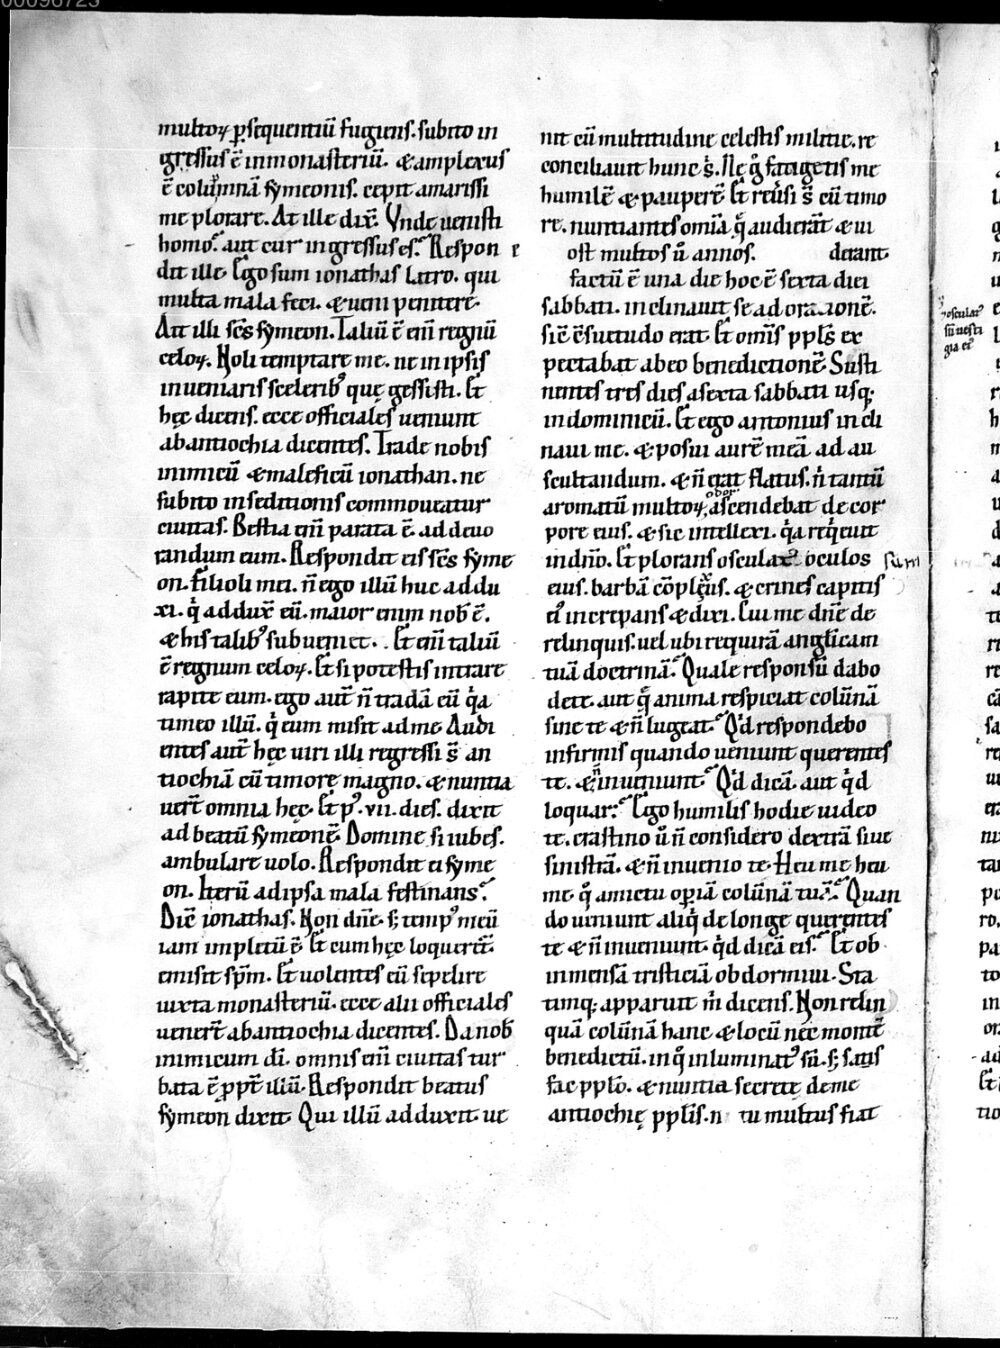 00096723
multoꝝ ꝑsequentiū fugiens. subito in
gressus ē in monasteriū. & amplexus
ē colūnnā symeonis. cepit amarissi
me plorare. At ille dix̄. Vnde uenisti
homo. aut cur ingressus es. Respon
dit ille. Ego sum ionathas latro. qui
multa mala feci. & ueni penitere.
Ait illi sc̄s symeon. Taliū ē eni᷒ regnū
celoꝝ. Noli temptare me. ne in ipsis
inueniaris sceleribꝰ quę gessisti. Et
hęc dicens. ecce officiales ueniunt
ab antiochia dicentes. Trade nobis
inimicū & maleficū ionathan. ne
subito in seditionis commoueatur
ciuitas. Bestia eni᷒ parata ē. ad deuo
randum eum. Respondit eis sc̄s syme
on. Filioli mei. n̄ ego illū huc addu
xi. q̇ addux̄ eū. maior enim nob̄ ē.
& his talibꝰ subuenict. Et eni᷒ taliū
ē regnum celoꝝ. Et si potestis intrare
rapite eum. ego aut̄ n̄ tradā eū q̇a
timeo illū. q̇ eum misit ad me. Audi
entes aut̄ hęc uiri illi regressi s̄ an
tiochiā cū timore magno. & nuntia
uer̄t omnia hęc. Et pꝰ. vii. dies. dixit
ad beatū symeonē. Domine si iubes.
ambulare uolo. Respondit ei syme
on. Iterū ad ipsa mala festinans.
Dic̄ ionathas. Non dn̄e. s; tempꝰ meū
iam impletū ē. Et cum hęc loqueret̄.
emisit sp̄m. Et uolentes eū sepelire
iuxta monasteriū. ecce alii officiales
uener̄t ab antiochia dicentes. Da nob̄
inimicum d̄i. omnis eni᷒ ciuitas tur
bata ē ꝓpt̄ illū. Respondit beatus
symeon dixit. Qui illū adduxit ue
nit cū multitudine celestis militie. re
conciliauit hunc s̓. Nę g̊ fatigetis me
humilē & pauperē. Et reūsi s̄ cū timo
re. nuntiantes omia. q̄ audierāt & ui
ost multos ū annos. derant
factū ē una die hoc ē sexta diei
sabbati. inclinauit se ad orationē.
sic̄ c̄suetudo erat. Et omīs ppl̄s ex
pectabat ab eo benedictionē. Susti
nentes tres dies a sexta sabbati usq;
in dominicū. Et ego antonius incli
naui me. & posui aurē meā ad au
scultandum. & n̄ erat flatus. n̓ tantū
aromatū multoꝝ odor ascendebat de cor
pore eius. & sic intellexi. q̇a reqͥeuit
in dn̄o. Et plorans osculatꝰ oculos sum
eius. barbā cōplexꝰ. & crines capitis
ei᷒ increpans & dixi. Cui me dn̄e de
relinquis. uel ubi requirā anglicam
tuā doctrinā. Quale responsū dabo
de te. aut q̄ anima respiciat colūnā
sine te & n̄ lugeat. Qͥd respondebo
infirmis quando ueniunt querentes
te. & n̄ inueniunt. Qͥd dicā. aut qͥd
loquar. Ego humilis hodie uideo
te. crastino ū n̄ considero dextrā siue
sinistrā. & n̄ inuenio te. Heu me heu
me. q̊ amictu oꝑiā colūnā tuā. Quan
do ueniunt aliq̇ de longe querentes
te & n̄ inueniunt. qͥd dicā eis. Et ob
inmensā tristiciā obdormiui. Sta
timq; apparuit m̓ dicens. Non relin
quā colūnā hanc & locū nec montē
benedictū. in q̊ inluminatꝰ sū. s; satis
fac pplo. & nuntia secrete de me
antiochię ppl̄is. n tu multus fiat
osculatꝰ
sū uesti
gia eiꝰ